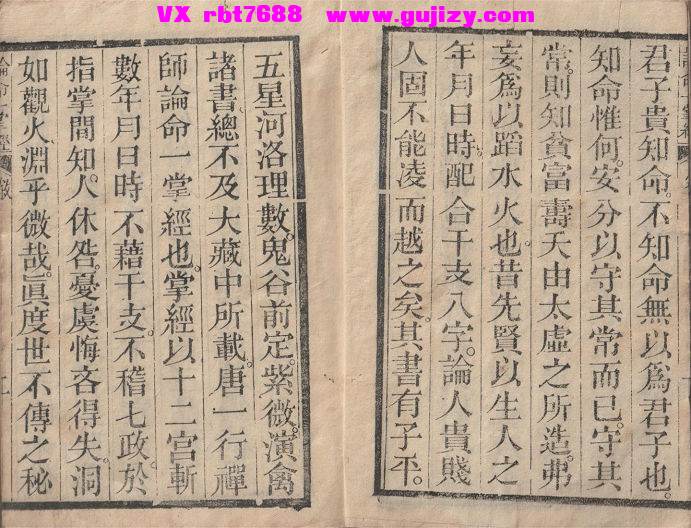 VX rbt7688 www.gujizy.com
君子貴知命。不知命無以爲君子也。
知命惟何。安分以守其常而已。守其
常。則知貧富壽夭由太虛之所造。弗
妄爲以蹈水火也。昔先賢以生人之
年月日時。配合干支八字。論人貴賤
人固不能凌而越之矣。其書有子平。
五星河洛理數。鬼谷前定。紫微。演禽
諸書。總不及大藏中所載。唐一行禪
師論命一掌經也。掌經以十二宮斬
數年月日時。不藉干支。不稽七政。於
指掌間知人休咎。憂虞悔吝得失。洞
如觀火。淵乎微哉。眞度世不傳之秘